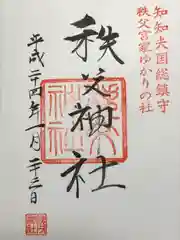 知知夫国総鎮守
秩父宮家ゆかりの社
秩父神社
平成二十四年一月二十三日